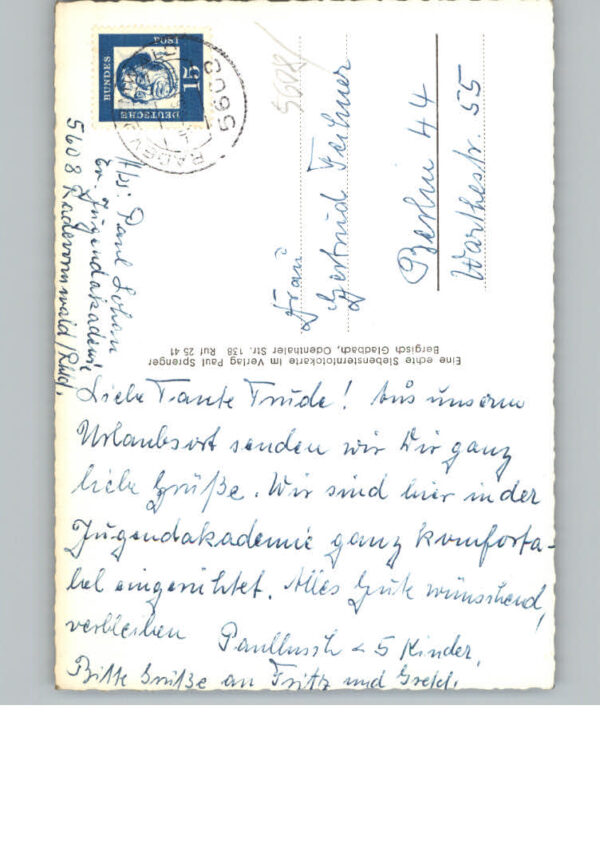 Liebe Tante Trude! Aus unserm
Urlaubsort senden wir Dir ganz
liebe Grüße. Wir sind hier in der
Jugendakademie ganz komforta-
bel eingerichtet. Alles Gute wünschend,
verbleiben 5 Kinder.
Bitte Grüße an Fritz und Gretel.
Abs. Paul Lohan
Ev. Jugendakademie
5608 Radevormwald/Rhld.
Frau
Gertrud
Berlin 44
Warthestr. 55
5608/
Eine echte Siebensternfotokarte im Verlag Paul Sprenger
Bergisch Gladbach, Odenthaler Str. 138 Ruf 25 41
DEUTSCHE
BUNDES
POST
15
5608